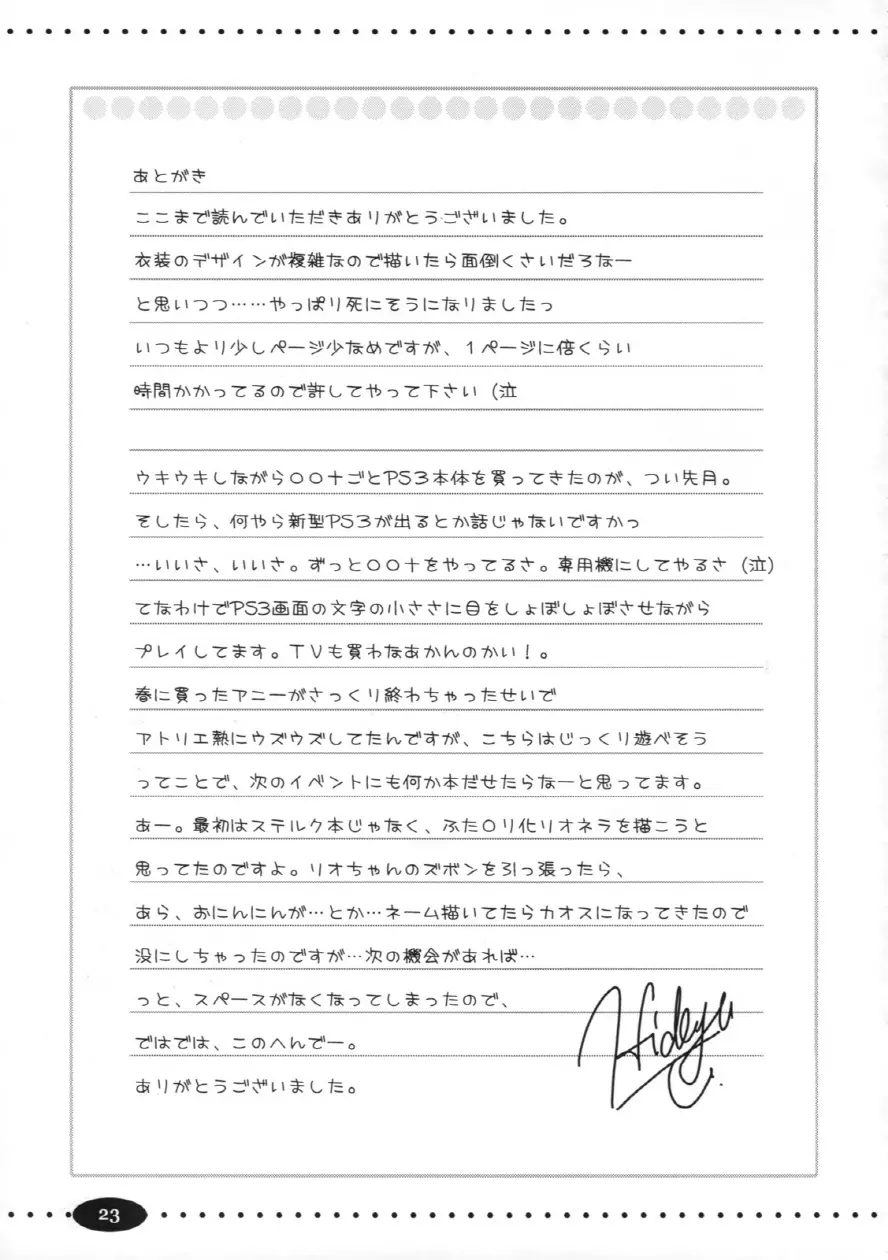 あとがき
ここまで読んでいただきありがとうございました。
衣装のデザインが複雑なので描いたら面倒くさいだろなー
と思いつつ……やっぱり死にそうになりましたっ
いつもより少しページ少なめですが、1ページに倍くらい
時間かかってるので許してやって下さい (泣
ウキウキしながら〇〇十ごとPS3本体を買ってきたのが、つい先月。
そしたら、何やら新型PS3が出るとか話じゃないですかっ
…いいさ、いいさ。ずっと〇〇十をやってるさ。専用機にしてやるさ (泣)
てなわけでPS3画面の文字の小ささに目をしょぼしょぼさせながら
プレイしてます。TVも買わなあかんのかい!。
春に買ったアニーがさっくり終わちゃったせいで
アトリエ熱にウズウズしてたんですが、こちらはじっくり遊べそう
ってことで、次のイベントにも何か本だせたらなーと思ってます。
あー。最初はステルク本じゃなく、ふた〇リ化リオネラを描こうと
思ってたのですよ。リオちゃんのズボンを引っ張ったら、
あら、おにんにんが…とか…ネーム描いてたらカオスになってきたので
没にしちゃったのですが…次の機会があれば…
っと、スペースがなくなってしまったので、
ではでは、このへんでー。
ありがとうございました。
Hideyu
23